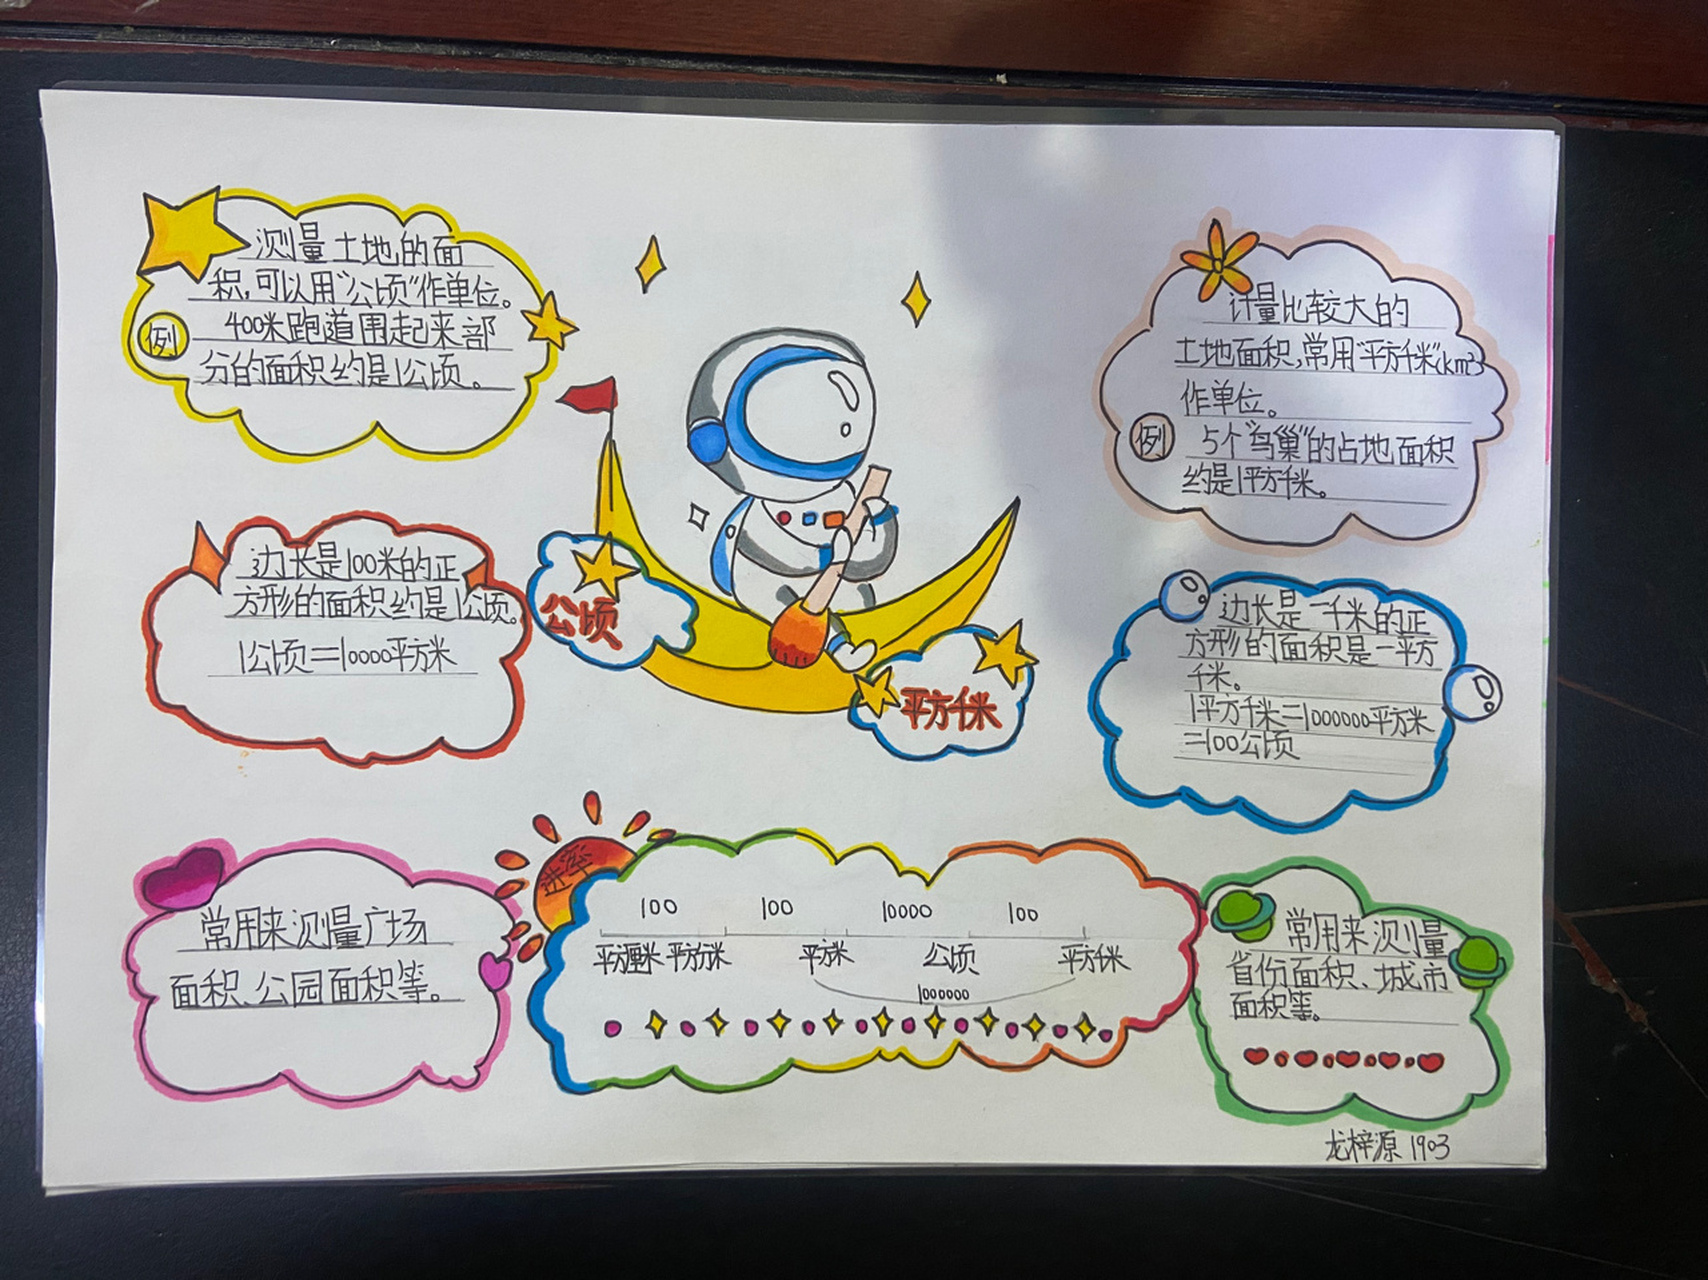 测量土地的面
积,可以用“公顷”作单位。
例
400米跑道围起来部
分的面积约是1公顷。
边长是100米的正
方形的面积约是1公顷。
1公顷=10000平方米
常用来测量广场
面积、公园面积等。
公顷
平方千米
进率
100 100 10000 100
平方厘米 平方分米 平方米 公顷 平方千米
1000000
计量比较大的
土地面积,常用“平方千米”(km²)
作单位。
例
5个“鸟巢”的占地面积
约是1平方千米。
边长是一千米的正
方形的面积是一平方
千米。
1平方千米=1000000平方米
=100公顷
常用来测量
省份面积、城市
面积等。
龙梓源 1903